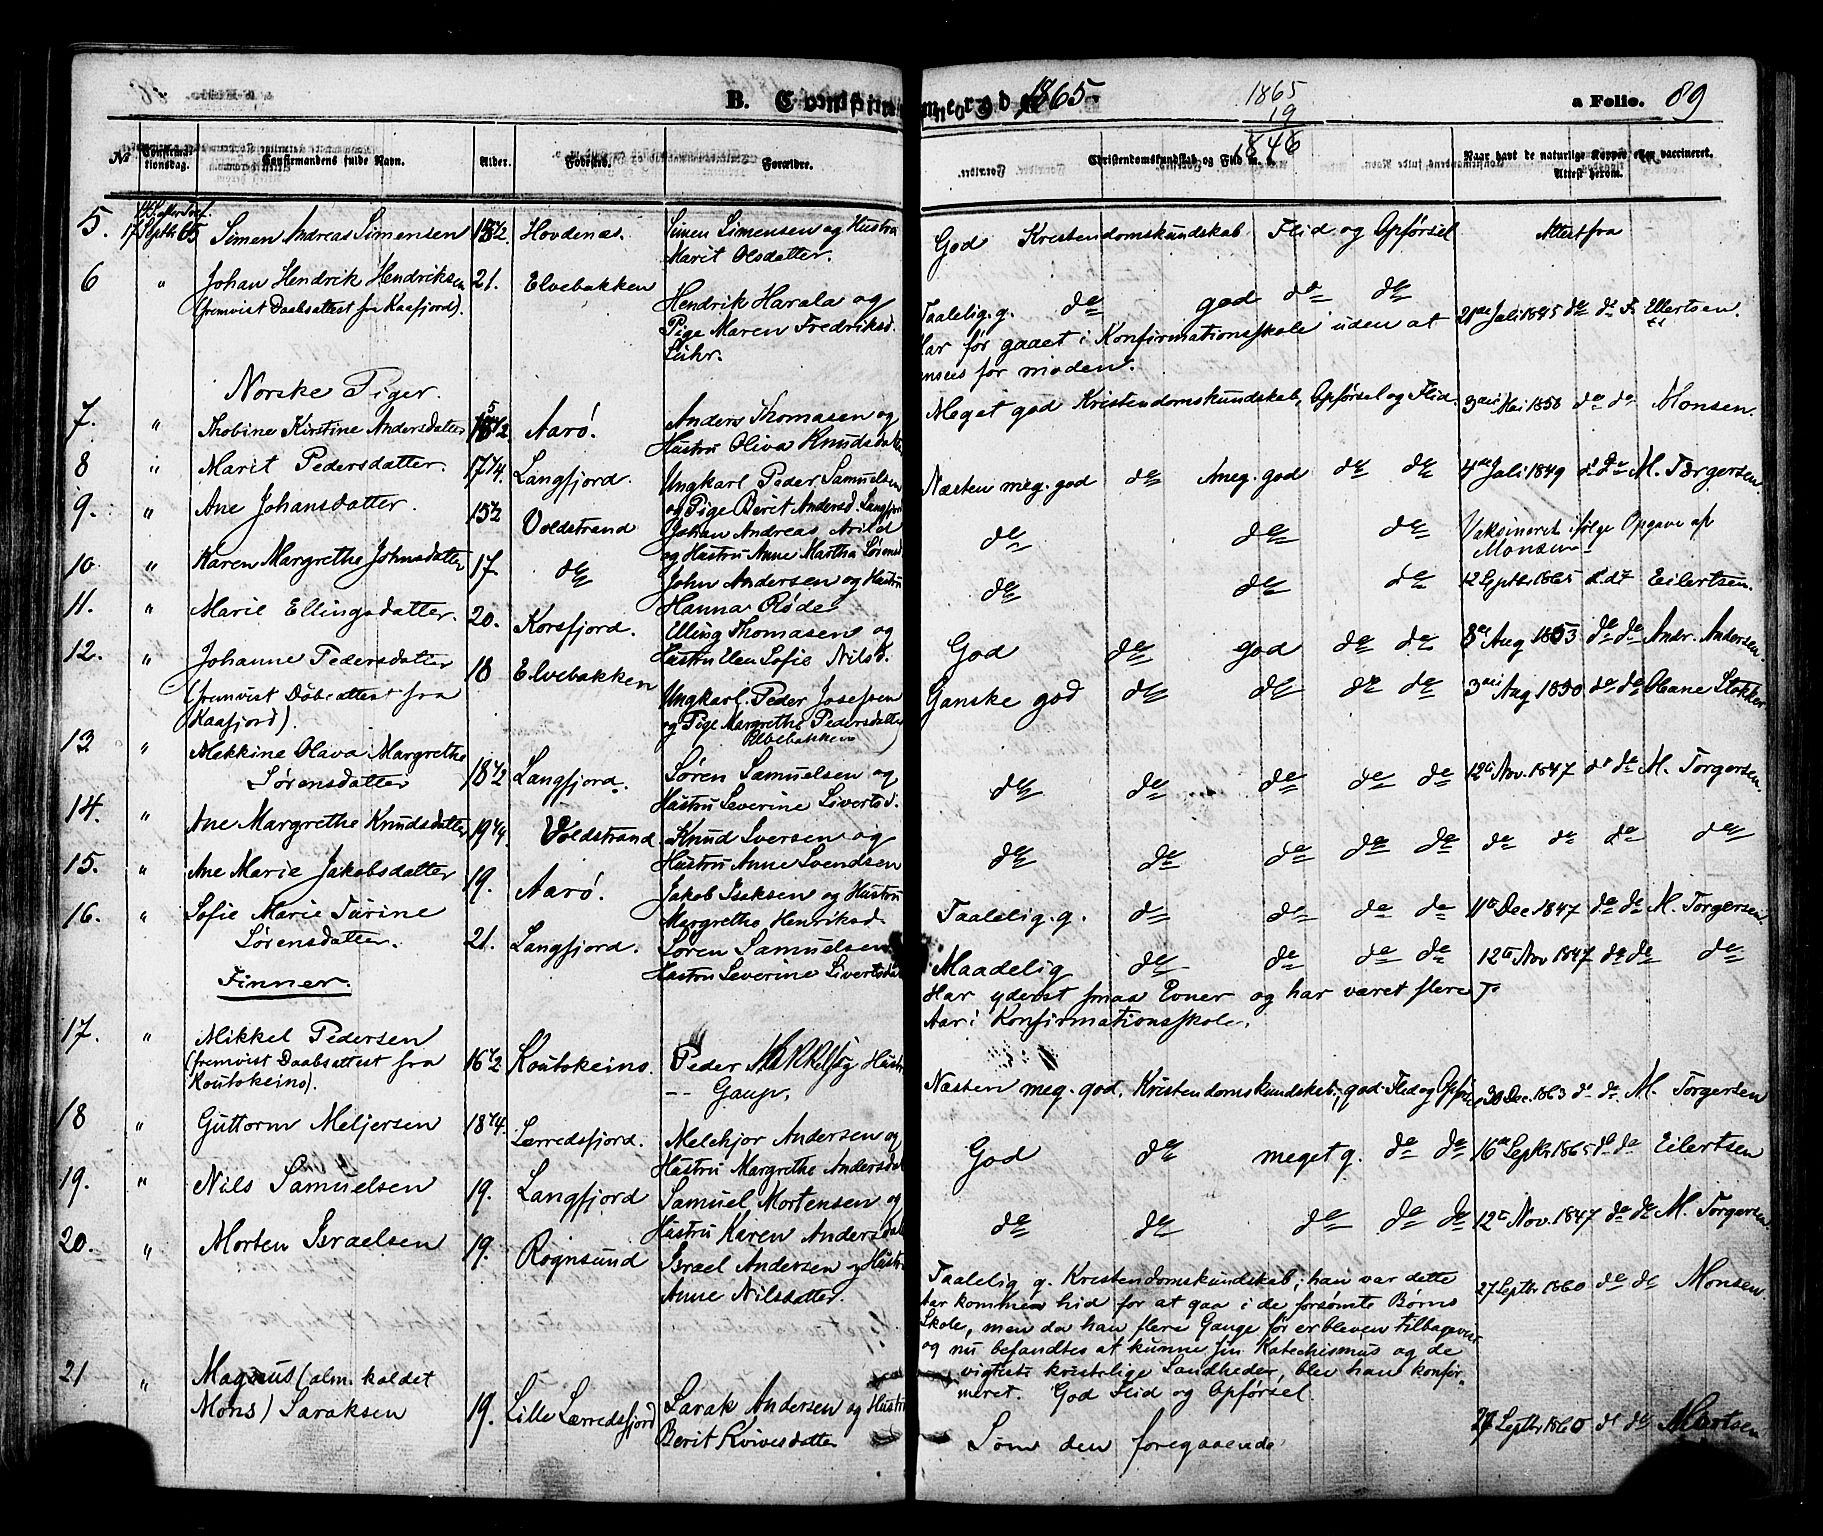 B. Confirmerede 1865.
1865
19
1846
a Folio. 89
No
Confirmationsdag.
Confirmandens fulde Navn.
Alder.
Fødested.
Forældre.
Christendomskundskab og Flid m. v.
Naar havt de naturlige Kopper eller vaccineret.
Attest herom.
5. 17 Septb 65 Simen Andreas Simensen Hovdenæs. Simen Simensen og Hustru
Marit Olsdatter.
God Kristendomskundskab Flid og Opførsel Attest fra
6 " Johan Hendrik Hendriksen 21. Elvebakken Hendrik Harala og
(fremvist Daabsattest fra Kaafjord). Pige Maren Fredriksd.
Lühr.
Taalelig g. do god do do 21de Juli 1845 do do F. Ellertsen.
Har før gaaet i Konfirmationsskole uden at
ansees for moden.
Norske Piger.
7. " Thobine Kirstine Andersdatter Aarø. Anders Thomasen og
Hustru Oliva Knudsdatter
Meget god Kristendomskundskab, Opførsel og Flid. 3die Mai 1850 do do Monsen.
8 " Marit Pedersdatter. 17 1/4. Langfjord. Ungkarl Peder Samuelsen
og Pige Berit Andersd. Langfjord
Næsten meg. god do meg. god do do 4de Juli 1849 do do M. Torgersen.
9. " Ane Johansdatter. 15 1/2 Voldstrand Johan Andreas Arild
og Hustru Anne Martha Sørensd
do do do Vaksineret ifølge Opgave af
Monsen
10. " Karen Margrethe Johnsdatter 17. do John Andersen og Hustru
Hanna Røde
do do do 12 Septbr 1865 do do Eilertsen.
11. " Marie Ellingsdatter. 20. Korsfjord. Elling Thomasen og
Hustru Elen Sofie Nilsd.
God do god do do 8de Aug 1853 do do Andr. Andersen.
12. " Johanne Pedersdatter 18 Elvebakken Ungkarl Peder Josefsen
(fremvist Døbeattest fra og Pige Margrethe Pedersdatter
Kaafjord). Elvebakken)
Ganske god do do do do 3die Aug 1850 do do Hane Stokker
13 " Mekkine Olava Margrethe
Sørensdatter 18 1/2 Langfjord. Søren Samuelsen og
Hustru Severine Sivertsd.
do do do do do 12te Nov. 1847 do do M. Torgersen.
14. " Ane Margrethe Knudsdatter 19 1/4 Voldstrand Knud Iversen og
Hustru Anne Svendsen
do do do do do do do do do
15. " Ane Marie Jakobsdatter 19. Aarø. Jakob Isaksen og Hustru
Margrethe Henriksd.
Taalelig. g. do do do do 11te Dec 1847 do do M. Torgersen.
16. " Sofie Marie Turine
Sørensdatter. 21. Langfjord. Søren Samuelsen
Hustru Severine Sivertsdat
Maadelig do do do do 12te Nov 1847 do do do
Har yderst smaa Evner og har været flere
Aar i Konfirmationsskole.
Finner.
17. " Mikkel Pedersen
(fremvist Daabsattest fra
Koutokeino). 16 1/2 Koutokeino. Peder Mikkelsen og Hustr
-- Gaup.
Næsten meg. god. Kristendomskundskab, god Flid og Opfør 30 Dec. 1863 do do M. Torgersen
18 " Guttorm Meljersen 18 1/4. Lerredsfjord. Melchjor Andersen og
Hustru Margrethe Andersdat
God do meget g. do do 16de Septbr 1865 do do Eilertsen
19. " Nils Samuelsen 19. Langfjord Samuel Mortensen og
Hustru Karen Andersdat
do do do do do 12te Nov. 1847 do do M. Torgersen.
20. " Morten Israelsen 19. Rognsund Israel Andersen og Hustr
Anne Nilsdatter.
Taalelig g. Kristendomskundskab; han var dette
Aar kommen hid for at gaa i de forsømte Børns
Skole, men da han flere Gange før er bleven tilbagevist
og nu befandtes at kunne sin Katechismus og de
vigtigste kristelige Sandheder, blev han konfir-
meret. God Flid og Opførsel.
27 Septbr 1860 do do Monsen.
21 " Magnus (alm. kaldet
Mons) Saraksen 19. Lille Lerredsfjord Sarak Andersen og Hustru
Berit Kvivesdatter
Som den foregaaende 27 Septbr 1860 do do